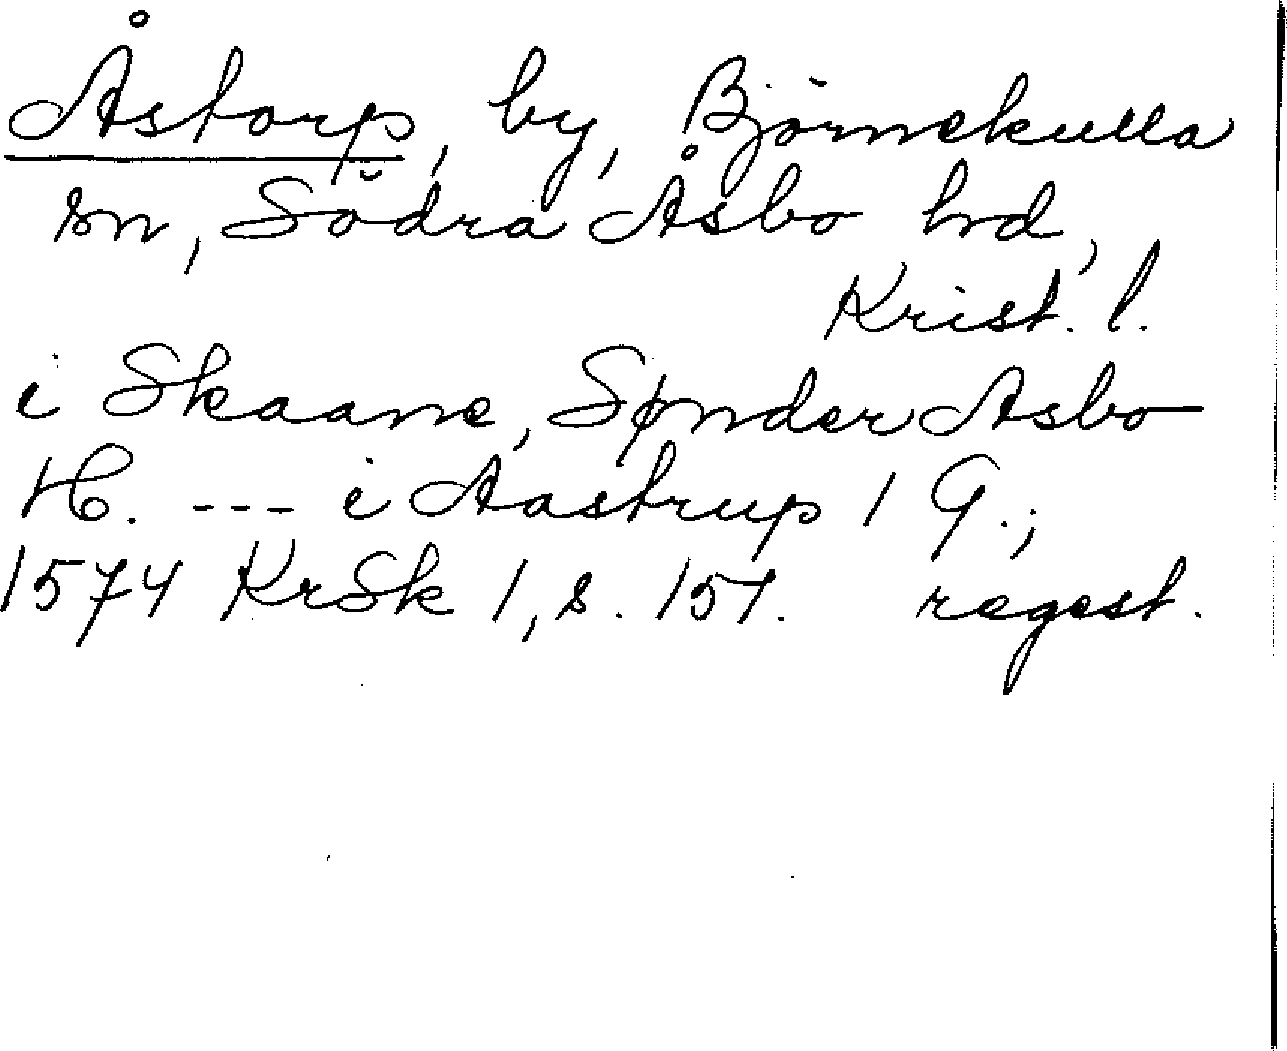 Åstorp, by, Björnekulla
sn, Södra Åsbo hd,
Krist. l.
i Skaane, Sønder Asbo
H. --- i Aastrup 1 G.;
1574 KrSk 1, s. 157. regest.